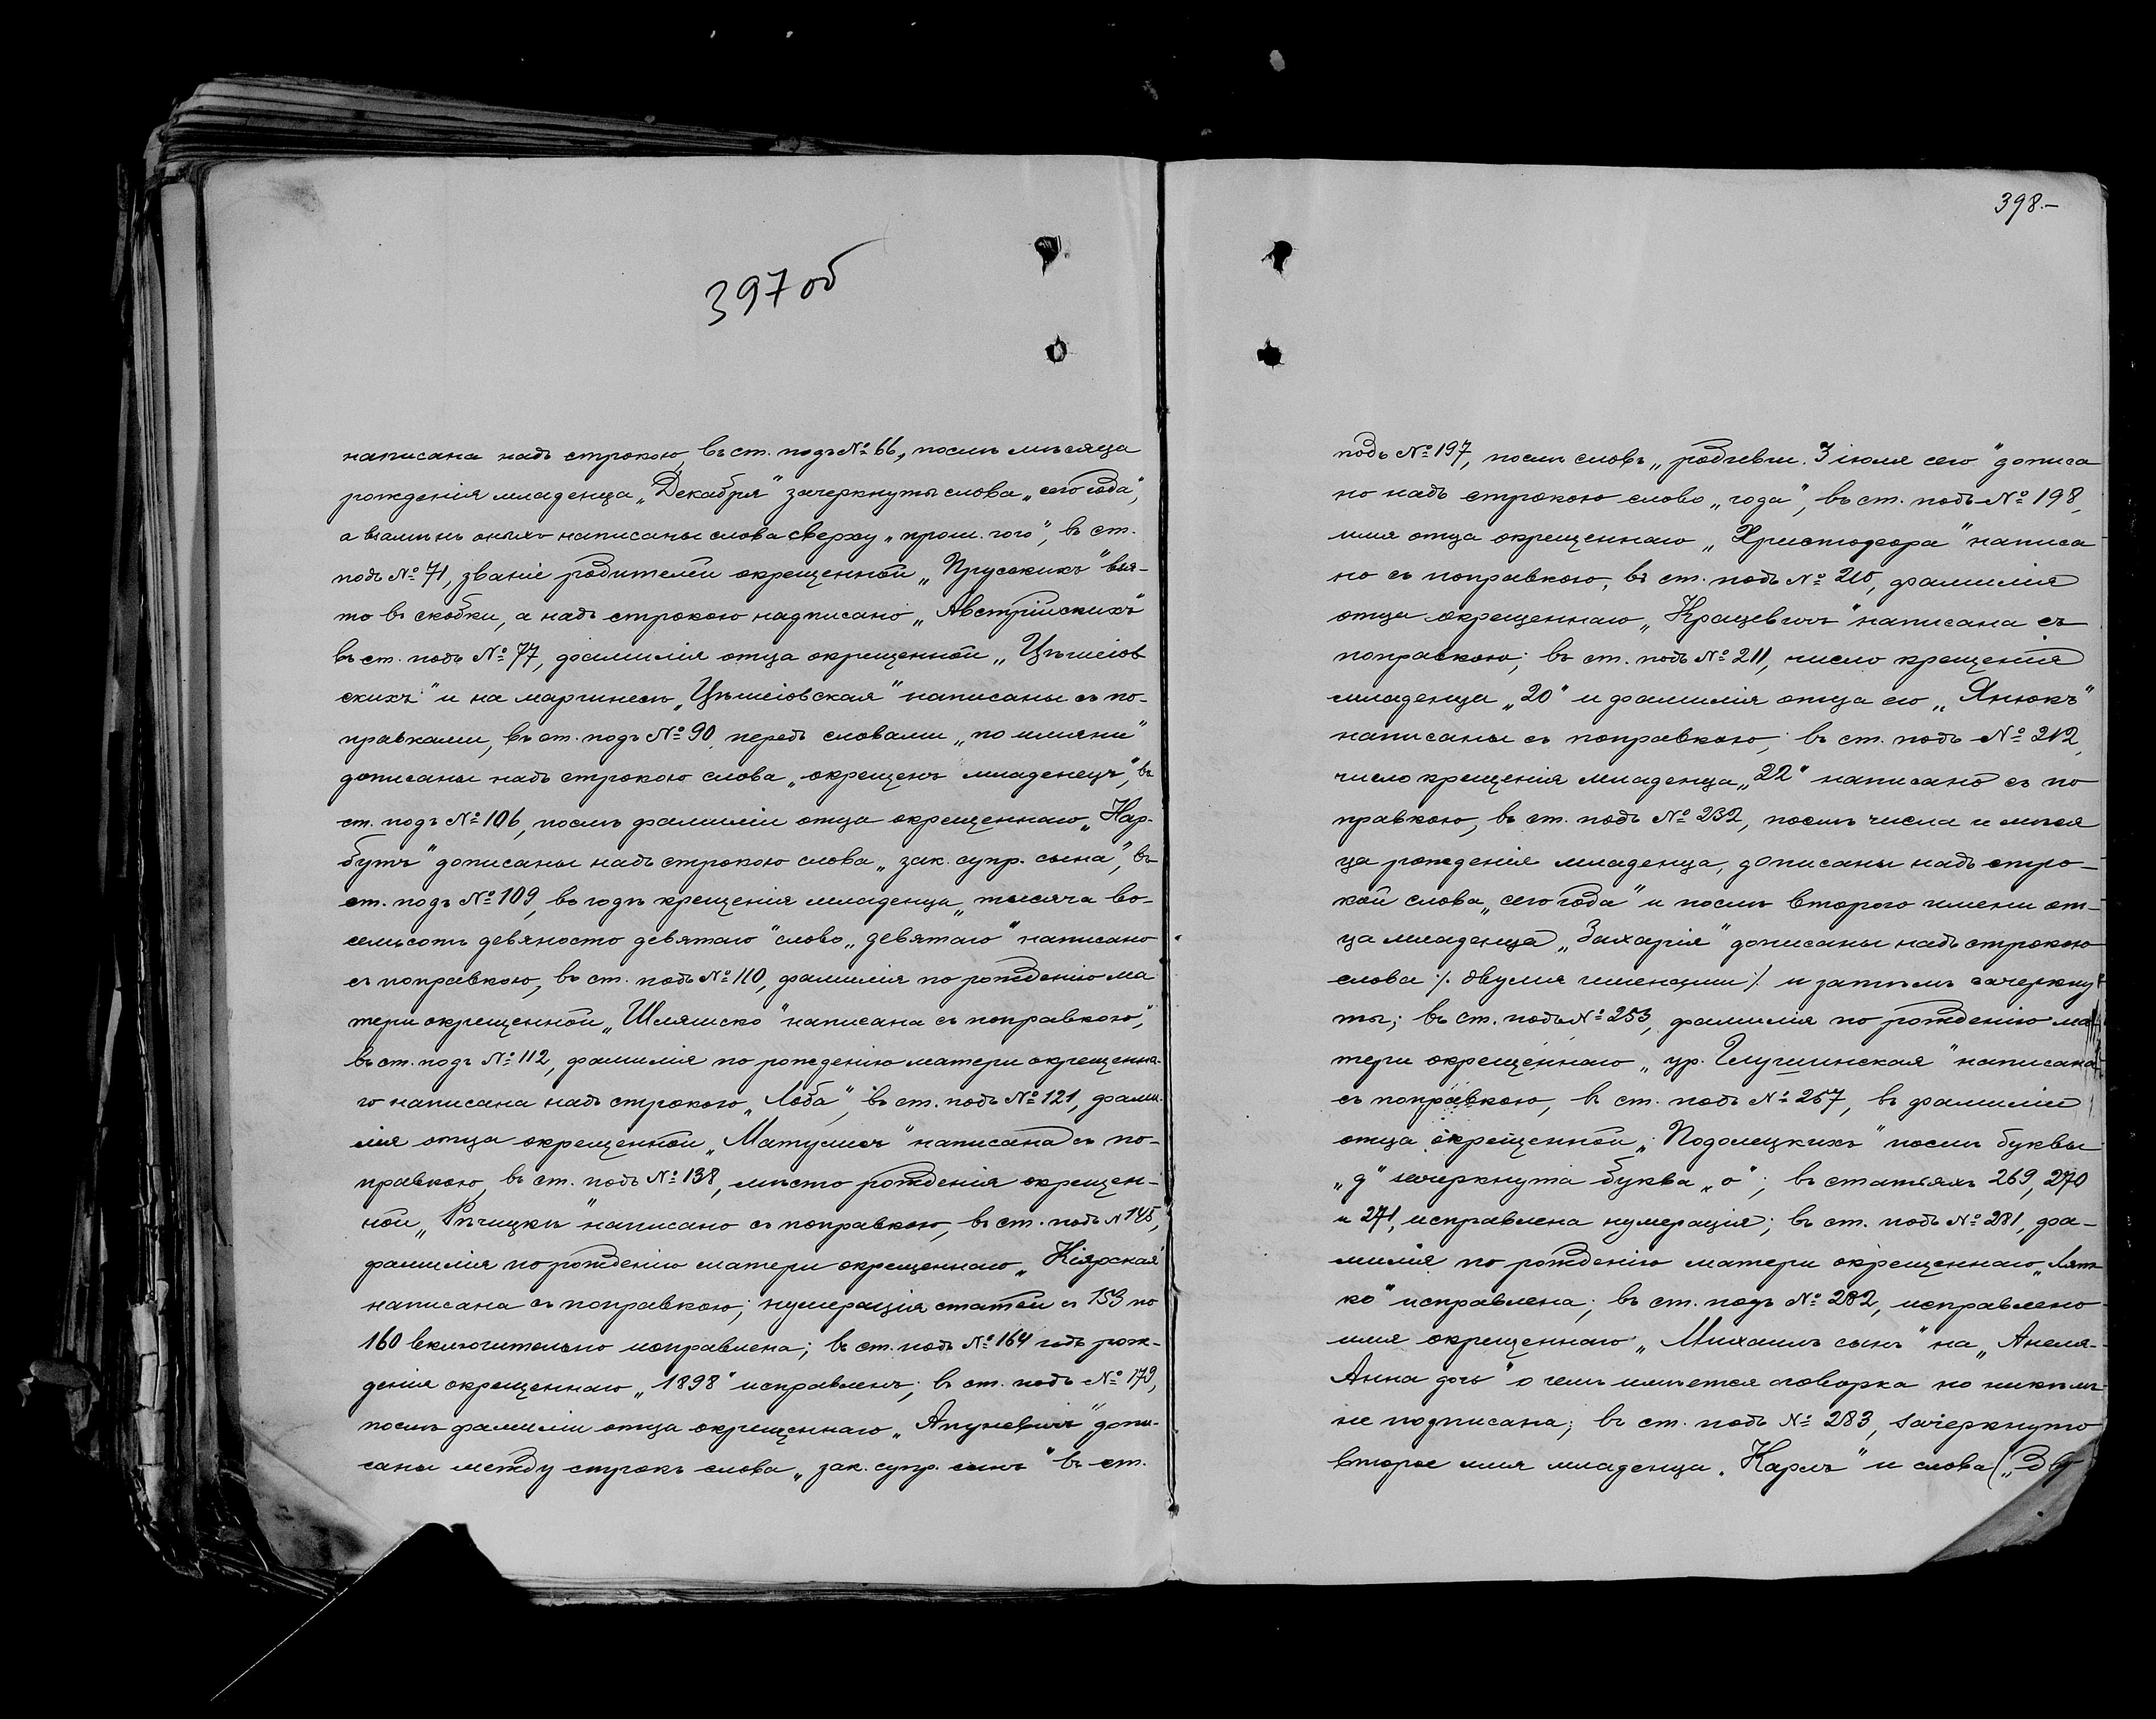 397 об
написана надъ строкою, въ ст. подъ № 66, послѣ мѣсяца
рожденія младенца „Декабря" зачеркнуты слова „сего года",
а взамѣнъ оныхъ написаны слова сверху „прош. гого", въ ст.
подъ № 71, званіе родителей окрещенной „Прусскихъ" взя-
то въ скобки, а надъ строкою надписано „Австрійскихъ"
въ ст. подъ № 77, фамилія отца окрещенной „Цѣшеіов
скихъ" и на маргинесѣ „Цѣшеіовская" написаны съ по-
правками, въ ст. подъ № 90, передъ словами „по имени"
дописаны надъ строкою слова „окрещенъ младенецъ", въ
ст. подъ № 106, послѣ фамиліи отца окрещеннаго „Нар-
бутъ" дописаны надъ строкою слова „зак. супр. сына", въ
ст. подъ № 109, въ годъ крещенія младенца „тысяча во-
семьсотъ девяносто девятаго" слово „девятаго" написано
съ поправкою, въ ст. подъ № 110, фамилія по рожденію ма
тери окрещенной „Шляшко" написана съ поправкою",
въ ст. подъ № 112, фамилія по рожденію матери окрещенна-
го написана надъ строкою „Лоба", въ ст. подъ № 121, фами-
лія отца окрещенной „Матусъ" написана съ по-
правкою, въ ст. подъ № 138, мѣсто рожденія окрещен-
ной „Рѣчицкъ" написано съ поправкою, въ ст. подъ № 145,
фамилія по рожденію матери окрещеннаго „Кіярская"
написана съ поправкою; нумерація статей съ 153 по
160 включительно исправлена; въ ст. подъ № 164 годъ рож-
денія окрещеннаго „1898" исправленъ; въ ст. подъ № 179,
послѣ фамиліи отца окрещеннаго „Ануневичъ" допи-
саны между строкъ слова „зак. супр. сынъ" въ ст.
398.-
подъ № 197, послѣ словъ „родивш. 3 іюля сего" дописа
но надъ строкою слово „года", въ ст. подъ № 198,
имя отца окрещеннаго „Христофора" написа
но съ поправкою, въ ст. подъ № 210, фамилія
отца окрещеннаго „Крацевичъ" написана съ
поправкою; въ ст. подъ № 211, число крещенія
младенца „20" и фамилія отца его „Янюкъ"
написаны съ поправкою; въ ст. подъ № 212,
число крещенія младенца „22" написано съ по
правкою, въ ст. подъ № 232, послѣ числа и мѣся
ца рожденія младенца, дописаны надъ стро-
кой слова „сего года" и послѣ второго имени от-
ца младенца „Захарія" дописаны надъ строкою
слова ·/. двумя именами ·/. и затѣмъ зачеркну
ты; въ ст. подъ № 253, фамилія по рожденію ма-
тери окрещеннаго „ур. Глушинская" написана
съ поправкою, въ ст. подъ № 257, въ фамиліи
отца окрещенной „Подолецкихъ" послѣ буквы
„д" зачеркнута буква „о"; въ статьяхъ 269, 270
и 271, исправлена нумерація; въ ст. подъ № 281, фа-
милія по рожденію матери окрещеннаго „Лят-
ко" исправлена; въ ст. подъ № 282, исправлено
имя окрещеннаго „Михаилъ сынъ" на „Анеля-
Анна дочь" о чемъ имѣется оговорка но никѣмъ
не подписана; въ ст. подъ № 283, зачеркнуто
второе имя младенца „Карлъ" и слова („Дву